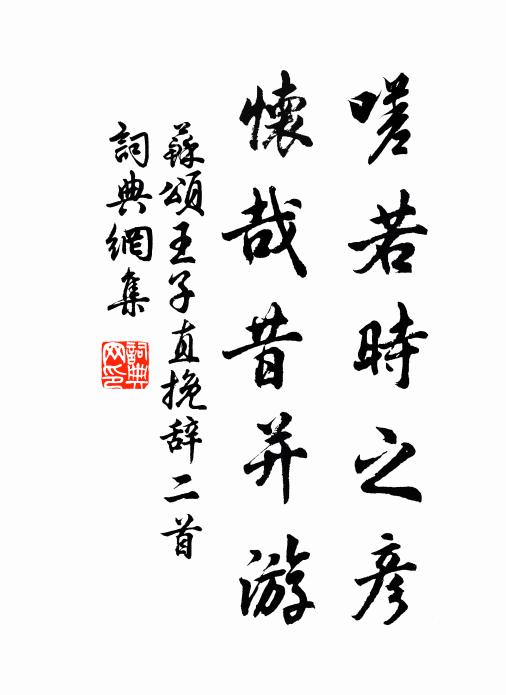 嗟若時之彥
懷哉昔并游
蘇頌王子直挽辞二首
詞典網集
詞典网印